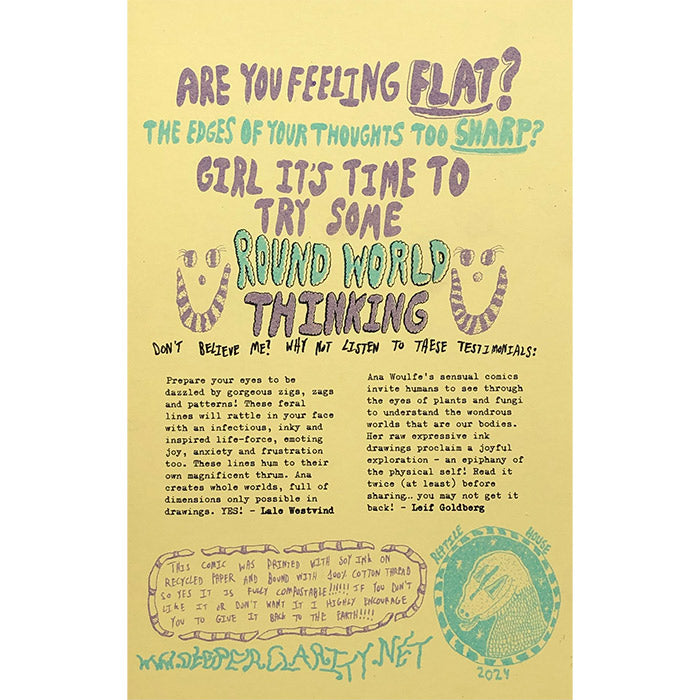 ARE YOU FEELING FLAT?
THE EDGES OF YOUR THOUGHTS TOO SHARP?
GIRL IT'S TIME TO
TRY SOME
ROUND WORLD
THINKING
DON'T BELIEVE ME? WHY NOT LISTEN TO THESE TESTIMONIALS:
Prepare your eyes to be
dazzled by gorgeous zigs, zags
and patterns! These feral
lines will rattle in your face
with an infectious, inky and
inspired life-force, emoting
joy, anxiety and frustration
too. These lines hum to their
own magnificent thrum. Ana
creates whole worlds, full of
dimensions only possible in
drawings. YES! - Lale Westvind
Ana Woulfe's sensual comics
invite humans to see through
the eyes of plants and fungi
to understand the wondrous
worlds that are our bodies.
Her raw expressive ink
drawings proclaim a joyful
exploration - an epiphany of
the physical self! Read it
twice (at least) before
sharing... you may not get it
back! - Leif Goldberg
THIS COMIC WAS PRINTED WITH SOY INK ON
RECYCLED PAPER AND BOUND WITH 100% COTTON THREAD
SO YES IT IS FULLY COMPOSTABLE!!!!!! IF YOU DON'T
LIKE IT OR DON'T WANT IT I HIGHLY ENCOURAGE
YOU TO GIVE IT BACK TO THE EARTH!!!!
REPTILE HOUSE
2024
WWW.DEEPERCLARITY.NET